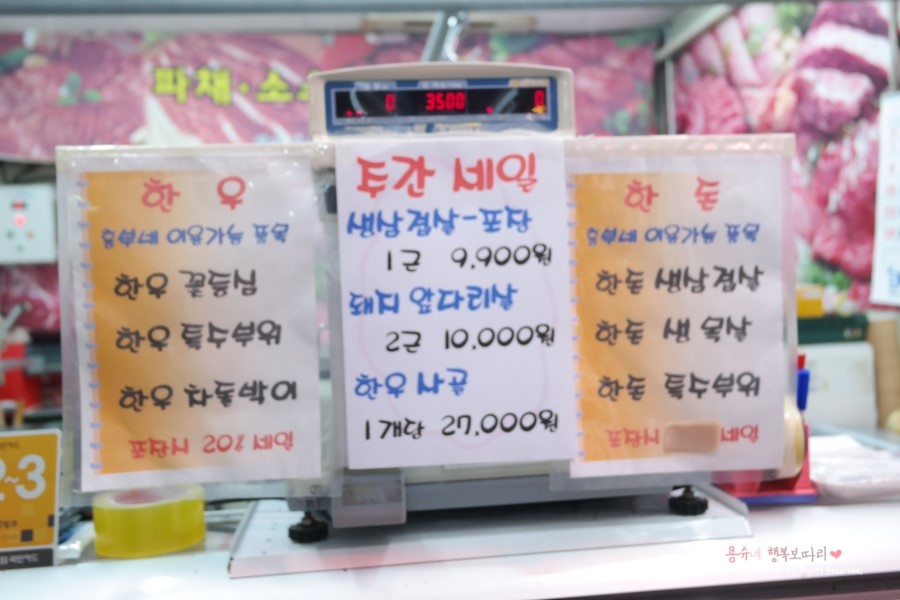 파채·소스
0 3500 0
한 우
한우 꽃등심
한우 특수부위
한우 차돌박이
포장시 20% 세일
주간 세일
생삼겹살-포장
1근 9,900원
돼지 앞다리살
2근 10,000원
한우사골
1개당 27,000원
한 돈
한돈 생삼겹살
한돈 생목살
한돈 특수부위
포장시 세일
2~3
용슈네 행복보따리♥